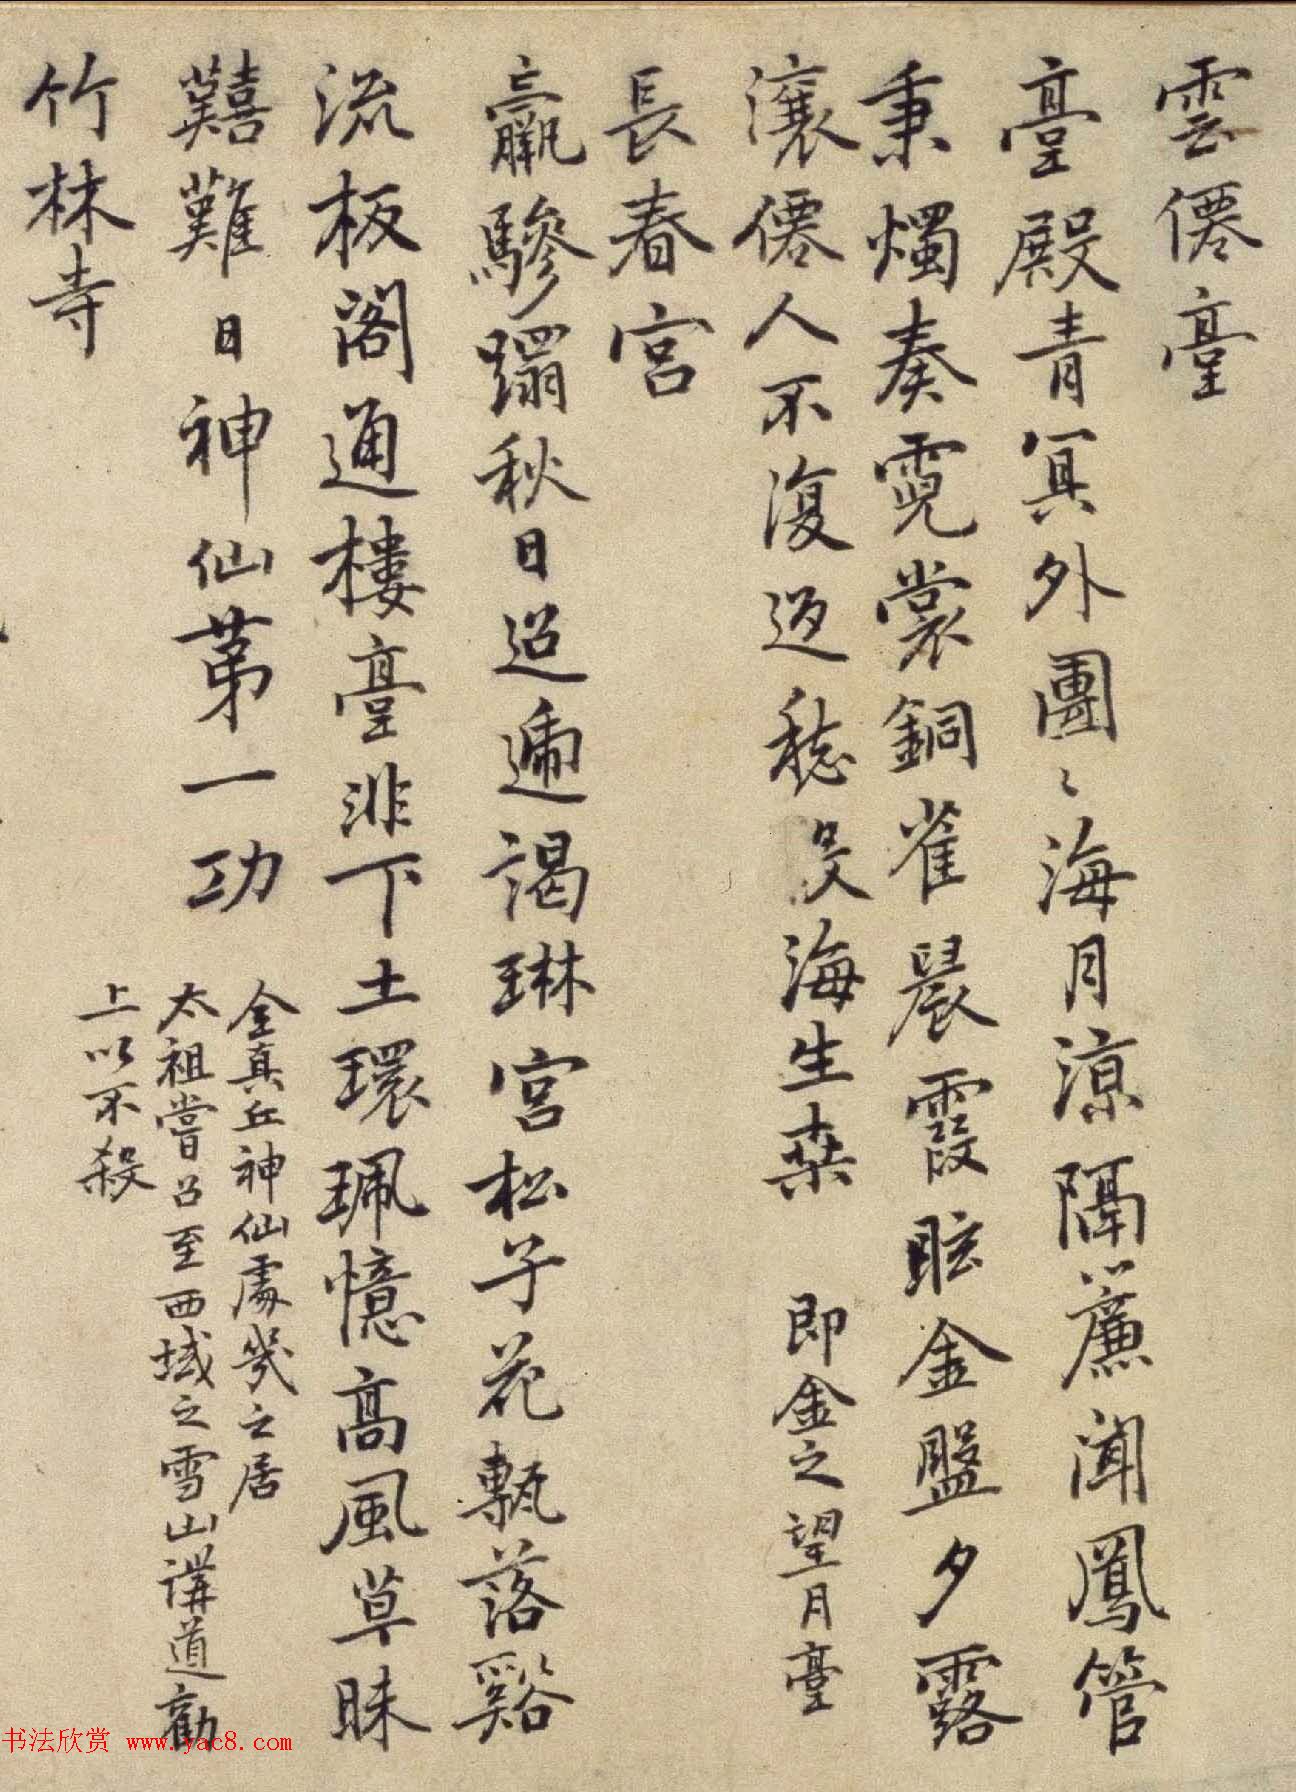 雲僊臺
臺殿青冥外團〻海月涼隔簾聞鳳管
秉燭奏霓裳銅雀晨霞眩金盤夕露
瀼僊人不復返愁見海生桒 即金之望月臺
長春宮
羸驂蹋秋日迢遞謁琳宮松子花甎落谿
流板閣通樓臺非下土環珮憶高風草昧
囏難日神仙第一功
全真丘神仙處幾之居
太祖嘗召至西域之雪山講道勸
上以不殺
竹林寺
书法欣赏 www.yac8.com